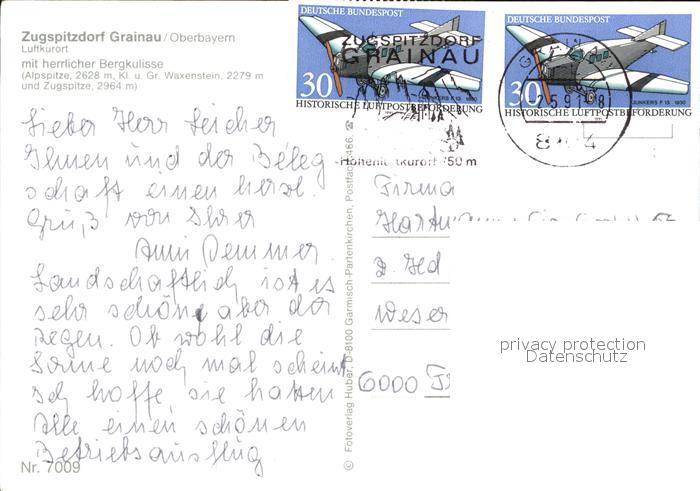 Zugspitzdorf Grainau/Oberbayern
Luftkurort
mit herrlicher Bergkulisse
(Alpspitze, 2628 m, Kl. u. Gr. Waxenstein, 2279 m
und Zugspitze, 2964 m)
Lieber Herr Leicher
Ihnen und der Beleg
schaft einen herzl.
Gruß von Ihrer
Anni Demmer.
Landschaftlich ist es
sehr schön, aber der
Regen. Ob wohl die
Sonne noch mal scheint
Ich hoffe sie hatten
Alle einen schönen
Betriebsausflug.
Nr. 7009
© Fotoverlag Huber, D-8100 Garmisch-Partenkirchen, Postfach 1466,
DEUTSCHE BUNDESPOST
30
JUNKERS F 13 1930
HISTORISCHE LUFTPOSTBEFÖRDERUNG
DEUTSCHE BUNDESPOST
30
JUNKERS F 13 1930
HISTORISCHE LUFTPOSTBEFÖRDERUNG
ZUGSPITZDORF
GRAINAU
750 m
Firma
Weser
6000
privacy protection
Datenschutz